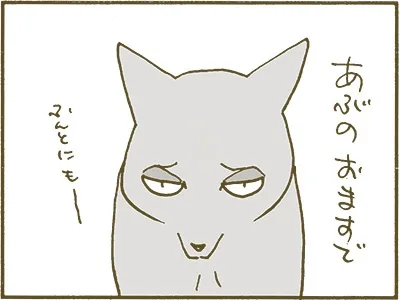 あぶの おますで
ぶんとにもー